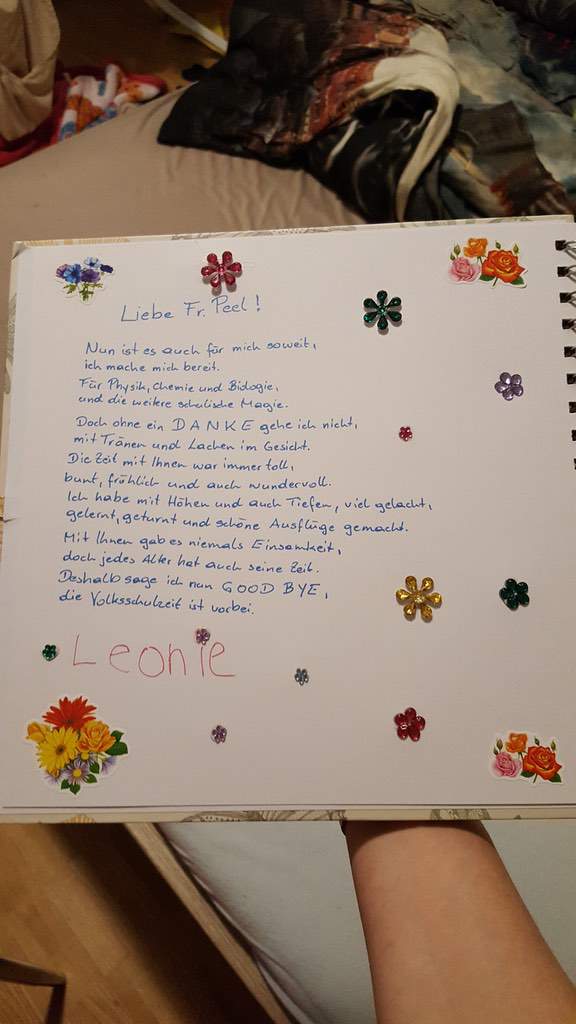 Liebe Fr. Peel!
Nun ist es auch für mich soweit,
ich mache mich bereit.
Für Physik, Chemie und Biologie,
und die weitere schulische Magie.
Doch ohne ein DANKE gehe ich nicht,
mit Tränen und Lachen im Gesicht.
Die Zeit mit Ihnen war immer toll,
bunt, fröhlich und auch wundervoll.
Ich habe mit Höhen und auch Tiefen, viel gelacht,
gelernt, geturnt und schöne Ausflüge gemacht.
Mit Ihnen gab es niemals Einsamkeit,
doch jedes Alter hat auch seine Zeit.
Deshalb sage ich nun GOOD BYE,
die Volksschulzeit ist vorbei.
Leonie